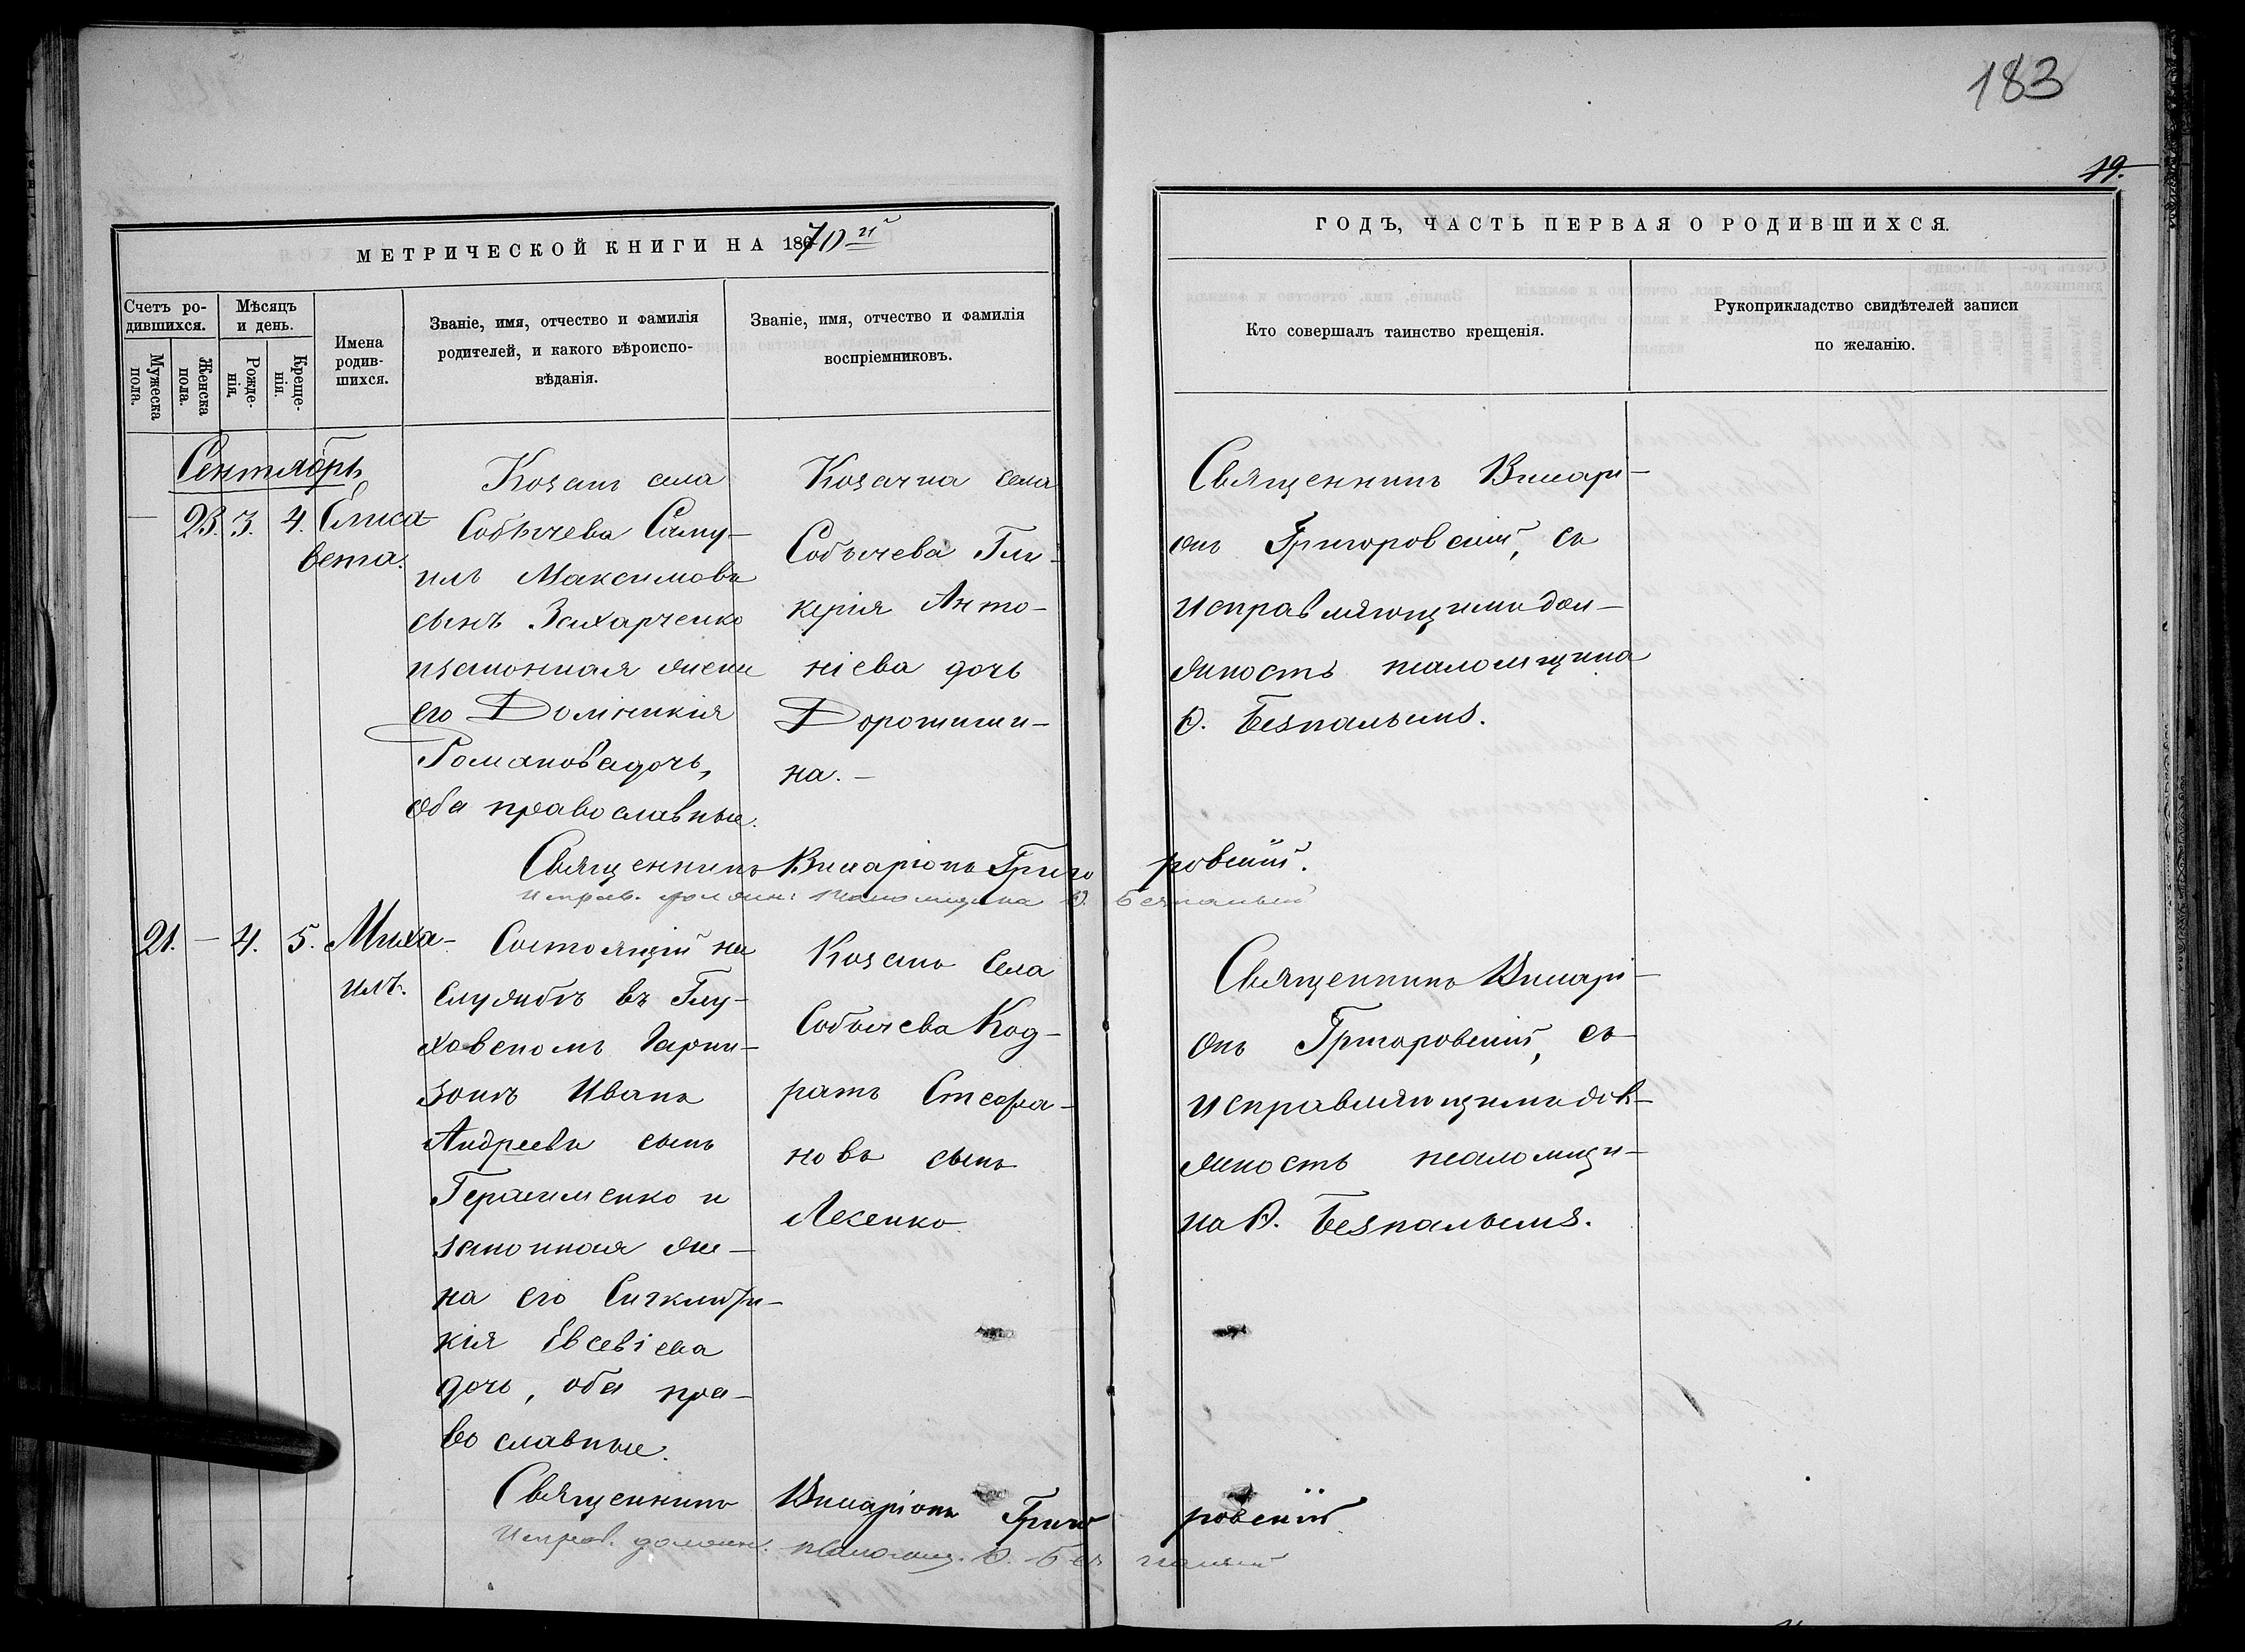 183
19.
МЕТРИЧЕСКОЙ КНИГИ НА 1870й
ГОДЪ, ЧАСТЬ ПЕРВАЯ О РОДИВШИХСЯ.
Счетъ ро-
дившихся.
Мужеска
пола.
Женска
пола.
Мѣсяцъ
и день.
Рожде-
нія.
Креще-
нія.
Имена
родив-
шихся.
Званіе, имя, отчество и фамилія
родителей, и какого вѣроиспо-
вѣданія.
Званіе, имя, отчество и фамилія
воспріемниковъ.
Кто совершалъ таинство крещенія.
Рукоприкладство свидѣтелей записи
по желанію.
Сентябрь
— 23. 3. 4.
Елиса
вета.
Козакъ села
Собычева Саму-
илъ Максимовъ
сынъ Захарченко
и законная жена
его Домникія
Романова дочь,
оба православные.
Козачка села
Собычева Гли-
керія Анто-
ніева дочь
Дорошии-
на. —
Священникъ Иларі-
онъ Григоровскій, съ
исправляющимъ дол-
жность псаломщика
Ѳ. Безпалымъ.
Священникъ Иларіонъ Григоровскій.
Исправ. должн: псаломщика Ѳ. Безпалый
21. — 4. 5.
Миха-
илъ.
Состоящій на
службѣ въ Глу-
ховскомъ Гарни-
зонѣ Иванъ
Андреевъ сынъ
Герасименко и
законная же-
на его Сигклити-
кія Евсевіева
дочь, оба пра-
вославные.
Козакъ села
Собычева Код-
ратъ Стефа-
новъ сынъ
Лесенко
Священникъ Иларі-
онъ Григоровскій, съ
исправляющимъ дол-
жность псаломщи-
ка Ѳ. Безпалымъ.
Священникъ Иларіонъ Григоровскій
Исправ. должн. псаломщ. Ѳ. Безпалый